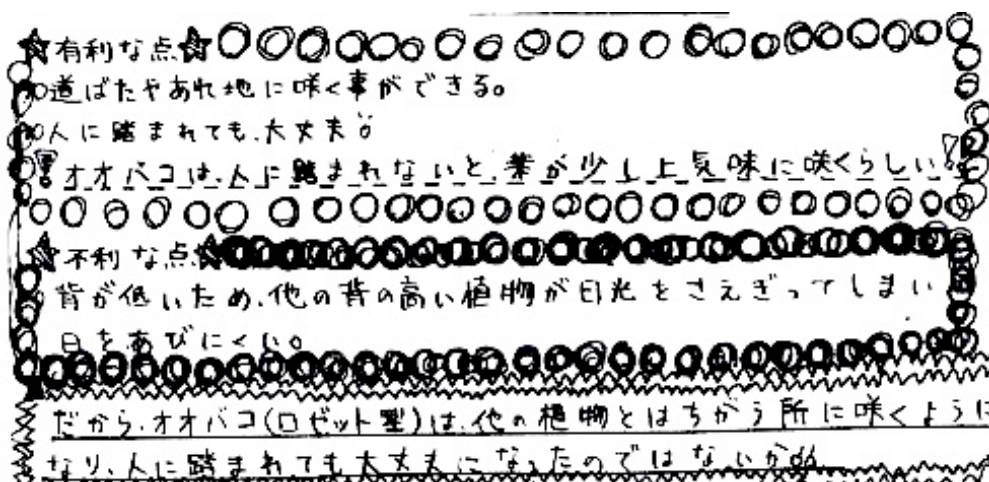 ☆有利な点☆
○道ばたやあれ地に咲く事ができる。
○人に踏まれても、大丈夫。
!オオバコは、人に踏まれないと、葉が少し上気味に咲くらしい!
☆不利な点☆
背が低いため、他の背の高い植物が日光をさえぎってしまい
日をあびにくい。
だから、オオバコ(ロゼット型)は、他の植物とはちがう所に咲くように
なり、人に踏まれても大丈夫になったのではないか。